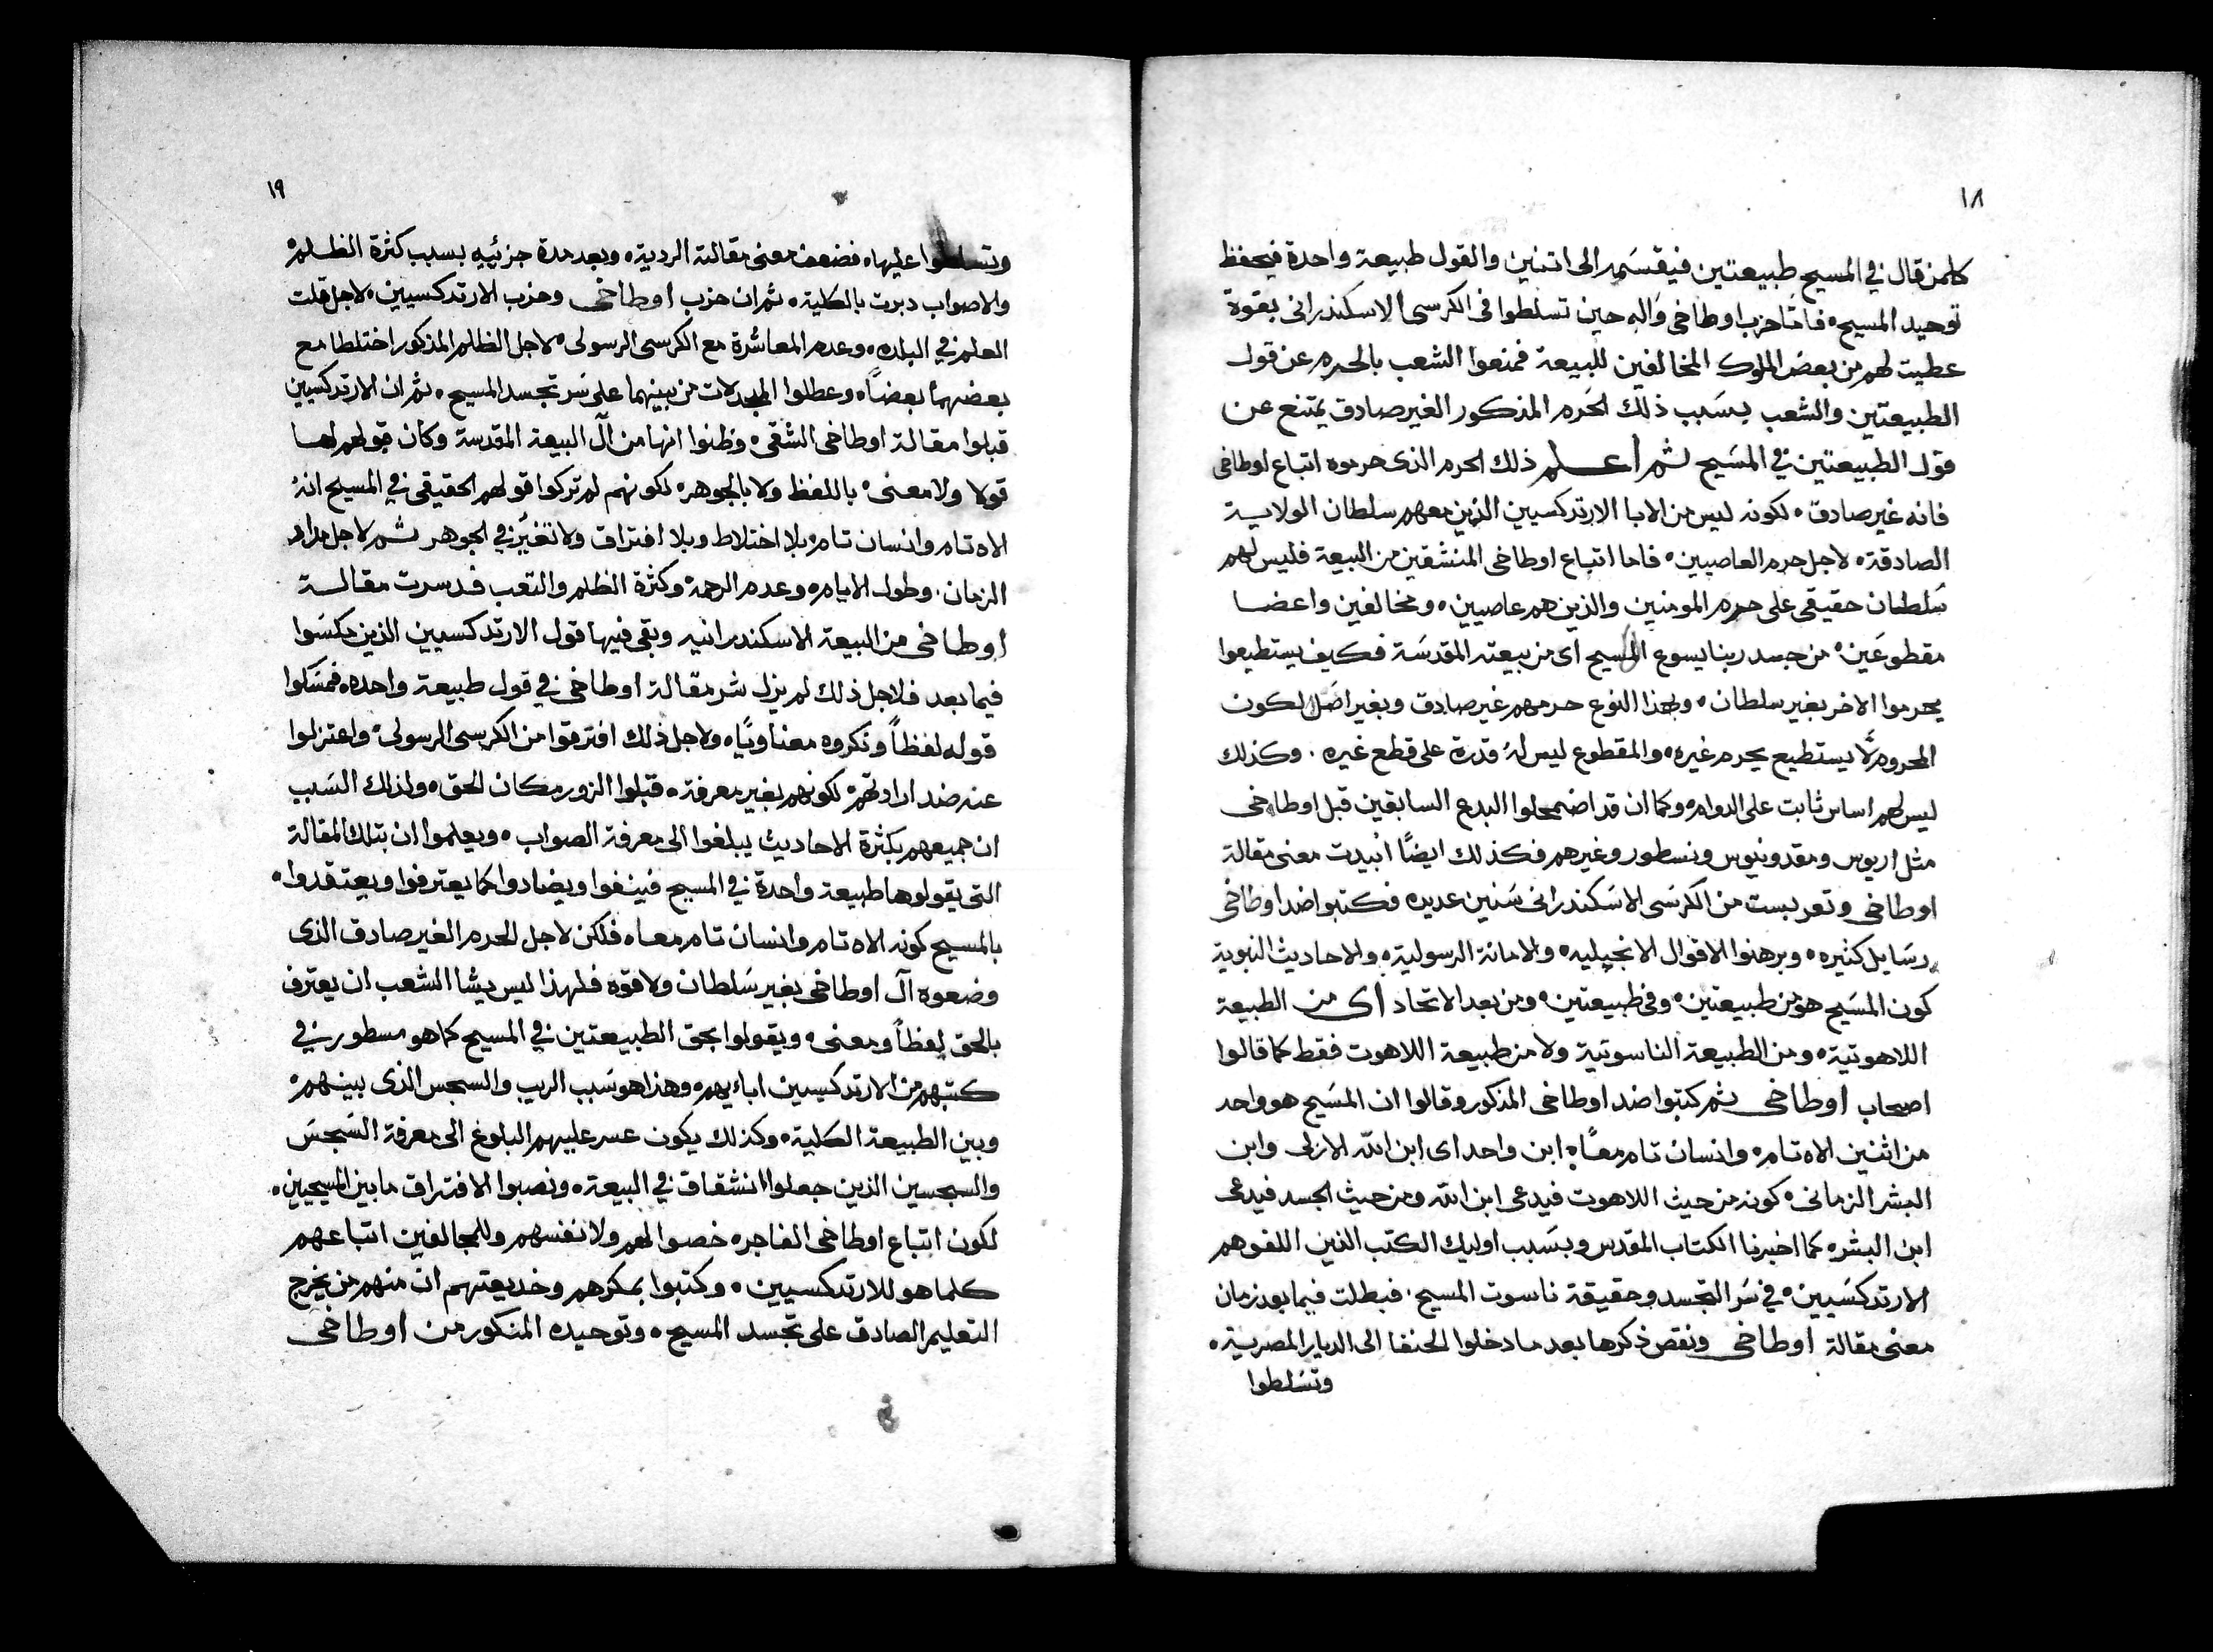 ١٨
كلمن قال في المسيح طبيعتين فيقسمه الى اتنين والقول طبيعة واحدة فيحفظ
توحيد المسيح، فامّا حزب اوطاخى وَاله حين تسلطوا فى الكرسى الاسكندرانى بقوة
عطيت لهم من بعض الملوك المخالفين للبيعة فمنعوا الشعب بالحرم عن قول
الطبيعتين والشعب بسَبب ذلك الحَرم المذكور الغير صادق يمتنع عن
قول الطبيعتين في المسَيح ثم أعلم ذلك الحرم الذى حرموه اتباع اوطاخى
فانه غير صادق، لكونه ليس من الابا الارتدكسيين الذين معهم سلطان الولاية
الصادقة، لاجل حرم العاصيين، فاما اتباع اوطاخى المنشقين من البيعة فليس لهم
سَلطان حقيقى على حرم المومنين والذين هم عاصيين، ومخالفين واعضا
مقطوعَين، من جسد ربنا يسوع المسيح اى من بيعته المقدسَة فكيف يستطيعوا
يحرموا الاخر بغير سلطان، ولهذا النوع حرمهم غير صادق وبغير اصَل لكون
المحروم لّا يستطيع يحرم غيره، والمقطوع ليس لهُ قدرة على قطع غيره. وكذلك
ليس لهم اساس ثابت على الدوام، وكما ان قد اضمحلوا البدع السابقين قبل اوطاخى
مثل اريوس ومقدونيوس ونسطور وغيرهم فكذلك ايضًا أبيدت معنى مقالة
اوطاخى وتعربست من الكرسَى الاسَكندرانى سَنين عديده فكتبوا ضد اوطاخى
رسَايل كثيره، وبرهنوا الاقوال الانجيليه، والامانة الرسولية، والاحاديث النبوية
كون المسَيح هو من طبيعتين، وفى طبيعتين، ومن بعد الاتحاد أى من الطبيعة
اللاهوتية، ومن الطبيعة الناسوتية ولا من طبيعة اللاهوت فقط كما قالوا
اصحاب اوطاخى ثم كتبوا ضد اوطاخى المذكور وقالوا ان المسَيح هو واحد
من اثنين الاه تام، وانسان تام معًا، ابن واحد اى ابن الله الازلى وابن
البشر الزمانى، كونه من حيث اللاهوت فيدعى ابن الله ومن حيث الجسد فيدعى
ابن البشر، كما اخبرنا الكتاب المقدس وبسَبب اوليك الكتب الذين اللفوهم
الارتدكسَيين، في سَر التجسد وحقيقة ناسوت المسيح. فبطلت فيما بعد زمان
معنى مقالة اوطاخى ونقص ذكرها بعد ما دخلوا الحنفا الى الديار المصرية،
وتسَلطوا
١٩
وتسلطوا عليها، فضعف معنى مقالته الردية، وبعد مدة جزئيه بسبب كثرة الظلم،
والاصواب دبرت بالكلية، ثم ان حزب اوطاخى وحزب الارتدكسيين، لاجل قلت
العلم في البلده، وعدم المعاشرة مع الكرسى الرسولى، لاجل الظلم المذكور اختلطا مع
بعضهما بعضًا، وعطلوا المجدلات من بينهما على سَر تجسد المسيح، ثم ان الارتدكسيين
قبلوا مقالة اوطاخى الشقى، وظنوا انها من آل البيعة المقدسة وكان قولهم لها
قولا ولا معنى، باللفظ ولا بالجوهر، لكونهم لم تركوا قولهم الحقيقى في المسيح انهُ
الاه تام وانسان تام، بلا اختلاط وبلا افتراق ولا تغيّر في الجوهر ثم لاجل مدام
الزمان. وطول الايام، وعدم الرحمة، وكثرة الظلم والتعب فدسرت مقالة
اوطاخى من البيعة الاسكندرانيه وبقى فيها قول الارتدكسيين الذين حكسَوا
فيما بعد فلاجل ذلك لم يزل شر مقالة اوطاخى في قول طبيعة واحده، فمسَكوا
قوله لفظاً ونكروه معنا ونيًا، ولاجل ذلك افترقوا من الكرسى الرسولى، واعتزلوا
عنه ضد ارادتهم، لكونهم بغير معرفة، قبلوا الزور مكان الحق، ولذلك السَبب
ان جميعهم بكثرة الاحاديث يبلغوا الى معرفة الصواب، ويعلموا ان بتلك المقالة
التى يقولوها طبيعة واحدة في المسيح فينفوا ويضادوا كما يعترفوا ويعتقدوا،
بالمسيح كونه الاه تام وانسان تام معا، فلكن لاجل الحرم الغير صادق الذى
وضعوه آل اوطاخى بغير سَلطان ولا قوه فلهذا ليس يشا الشعب ان يعترف
بالحق لفظاً ومعنى، ويقولوا بحق الطبيعتين في المسيح كما هو مسطور في
كتبهم من الارتدكسيين اباءيهم، وهذا هو سَبب الريب والسجس الذى بينهم،
وبين الطبيعة الكلية، وكذلك يكون عسر عليهم البلوغ الى معرفة السَجسَ
والسجسين الذين جعلوا انشقاق في البيعة، ونصبوا الافتراق مابين المسيحيين،
لكون اتباع اوطاخى الفاجره خصوا لهم ولانفسهم وللمخالفين اتباعهم
كلما هو للارتدكسيين، وكتبوا بمكرهم وخديعتهم ان منهم من يخرج
التعليم الصادق على تجسد المسيح، وتوحيده المنكور من اوطاخى